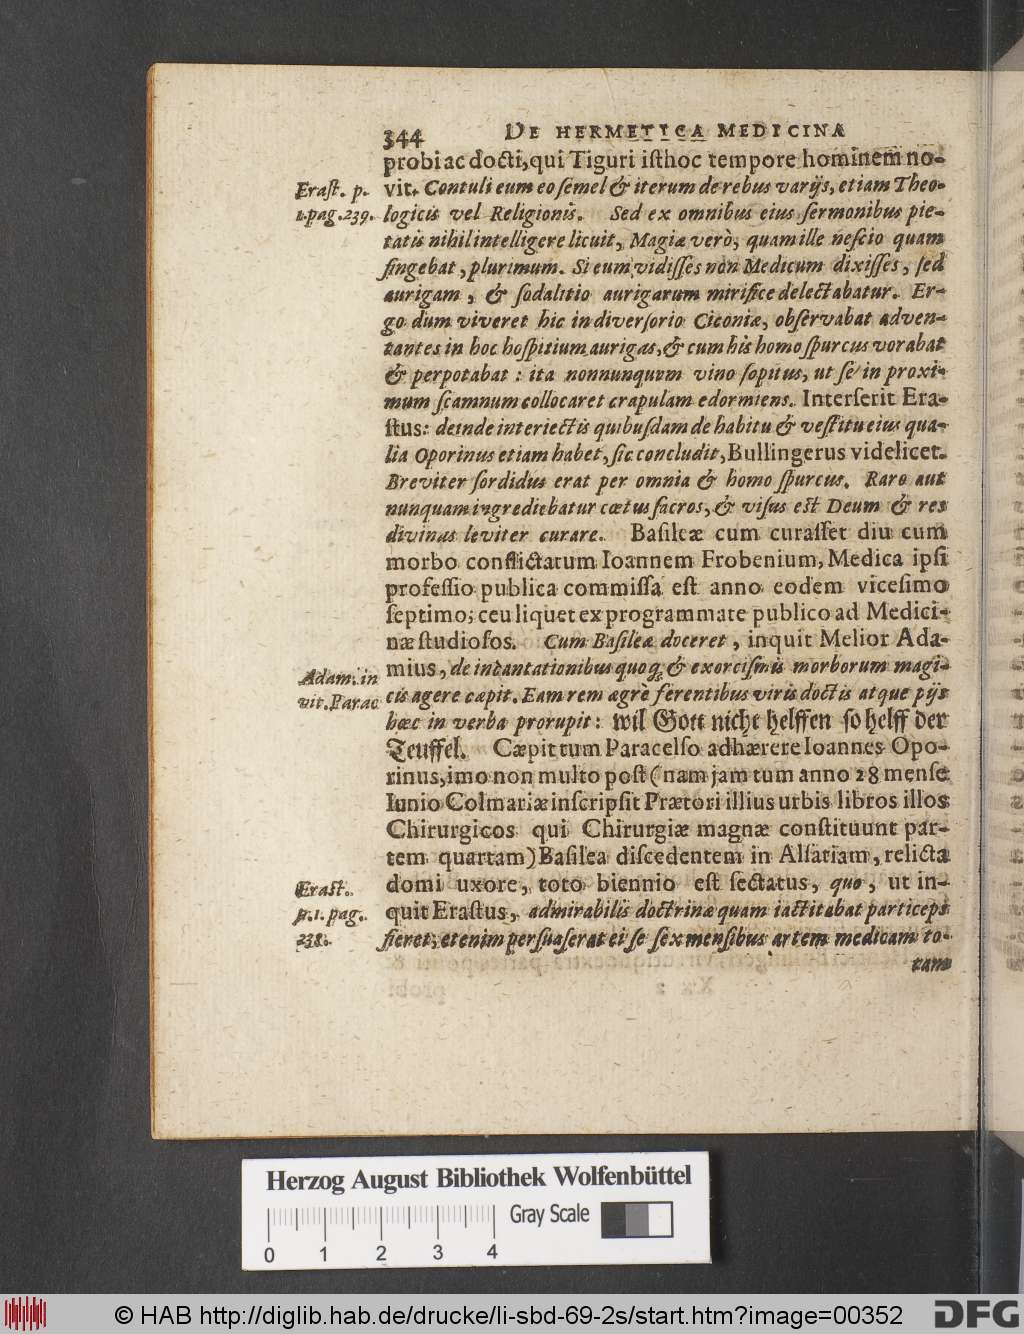 344 DE HERMETICA MEDICINA
probi ac docti, qui Tiguri isthoc tempore hominem no-
Erast. p. vit. Contuli eum eo semel & iterum de rebus varijs, etiam Theo-
1. pag. 239. logicis vel Religionis. Sed ex omnibus eius sermonibus pie-
tatis nihil intelligere licuit, Magiæ verò, quam ille nescio quam
fingebat, plurimum. Si eum vidisses non Medicum dixisses, sed
aurigam, & sodalitio aurigarum mirifice delectabatur. Er-
go dum viveret hic in diversorio Ciconiæ, observabat adven-
tantes in hoc hospitium aurigas, & cum his homo spurcus vorabat
& perpotabat: ita nonnunquam vino sopitus, ut se in proxi-
mum scamnum collocaret crapulam edormiens. Interserit Era-
stus: deinde interiectis quibusdam de habitu & vestitu eius qua-
lia Oporinus etiam habet, sic concludit, Bullingerus videlicet.
Breviter sordidus erat per omnia & homo spurcus. Raro aut
nunquam ingrediebatur cœtus sacros, & visus est Deum & res
divinas leviter curare. Basileæ cum curasset diu cum
morbo conflictatum Ioannem Frobenium, Medica ipsi
professio publica commissa est anno eodem vicesimo
septimo; ceu liquet ex programmate publico ad Medici-
næ studiosos. Cum Basileæ doceret, inquit Melior Ada-
Adam. in mius, de incantationibus quoq; & exorcismis morborum magi-
vit. Parac cis agere cæpit. Eam rem ægrè ferentibus viris doctis atque pijs
hæc in verba prorupit: wil Gott nicht helffen so helff der
Teuffel. Cæpit tum Paracelso adhærere Ioannes Opo-
rinus, imo non multo post (nam jam tum anno 28 mense
Iunio Colmariæ inscripsit Prætori illius urbis libros illos
Chirurgicos qui Chirurgiæ magnæ constituunt par-
tem quartam) Basilea discedentem in Alsatiam, relicta
Erast. domi uxore, toto biennio est sectatus, quo, ut in-
p. 1. pag. quit Erastus, admirabilis doctrinæ quam iactitabat particeps
238. fieret; etenim persuaserat ei se sex mensibus artem medicam to-
tam
Herzog August Bibliothek Wolfenbüttel
Gray Scale
0 1 2 3 4
© HAB http://diglib.hab.de/drucke/li-sbd-69-2s/start.htm?image=00352 DFG